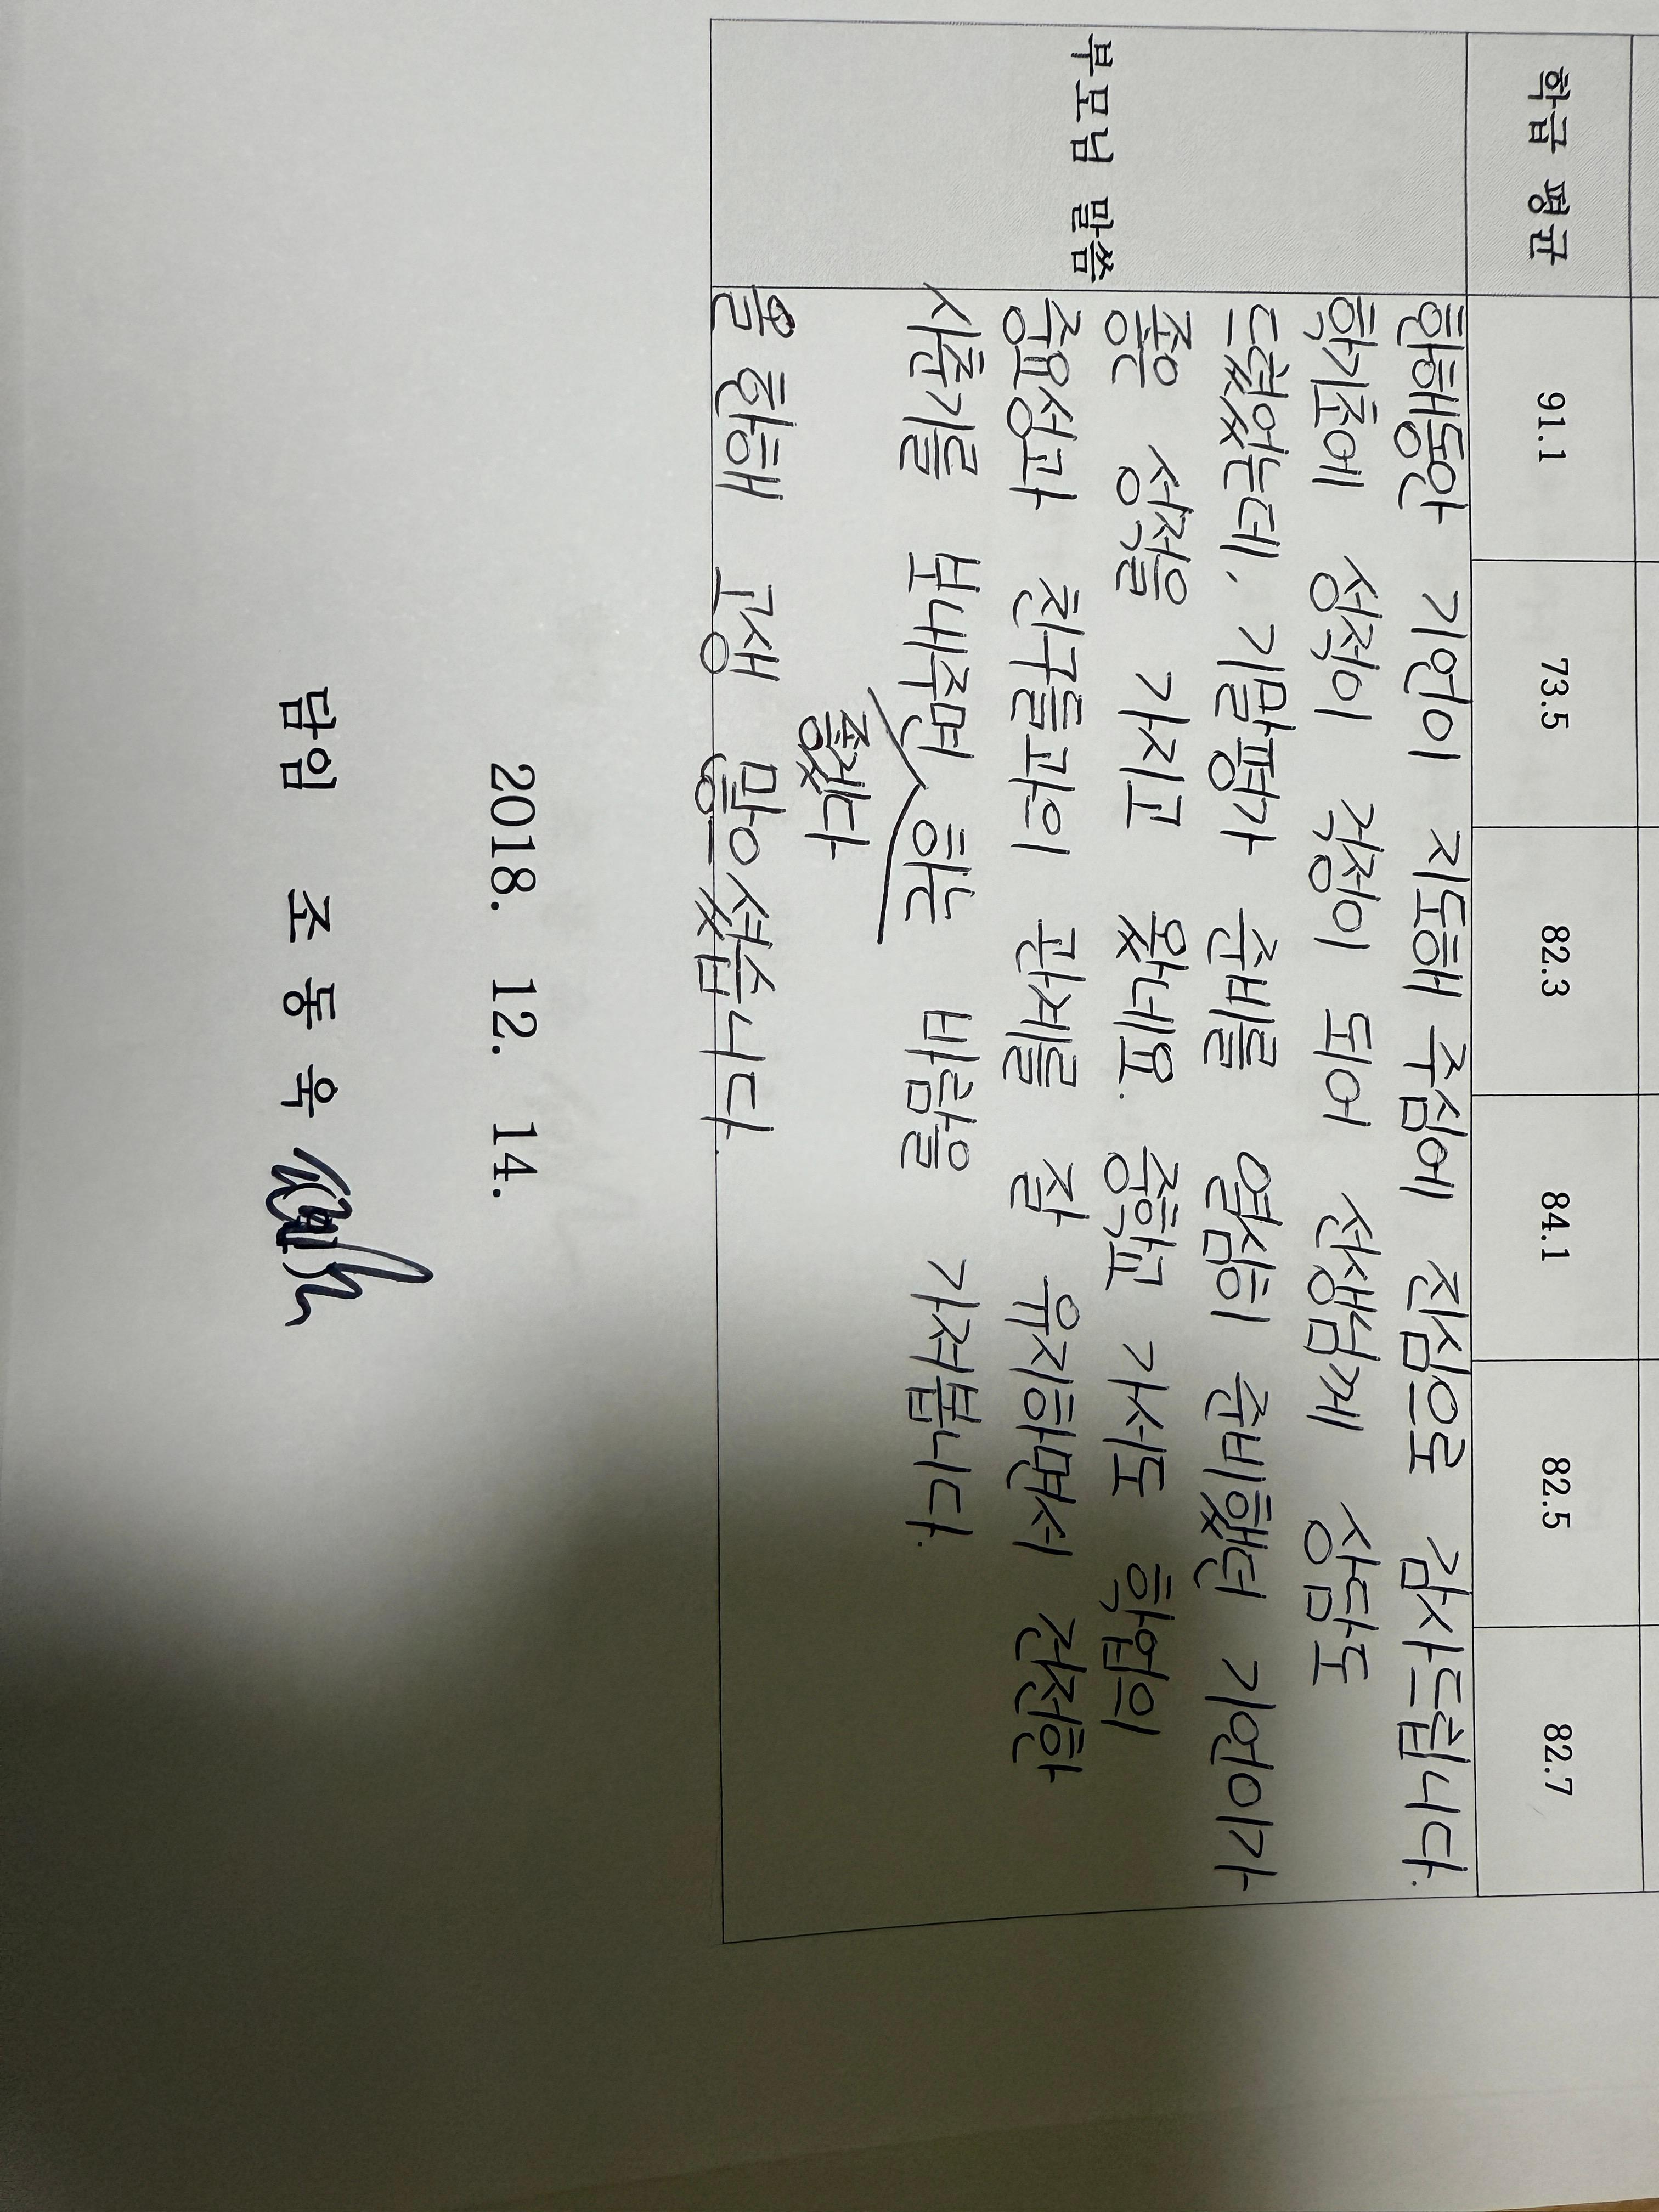 학급 평균 91.1 73.5 82.3 84.1 82.5 82.7
부모님 말씀
한해동안 기연이 지도해 주심에 진심으로 감사드립니다.
학기초에 성적이 걱정이 되어 선생님께 상담도
드렸었는데, 기말평가 준비를 열심히 준비했던 기연이가
좋은 성적을 가지고 왔네요. 중학교 가서도 학업의
중요성과 친구들과의 관계를 잘 유지하면서 건전한
사춘기를 보내주면 하는 바람을 가져봅니다.
좋겠다
올 한해 고생 많으셨습니다.
2018. 12. 14.
담임 조 동 옥